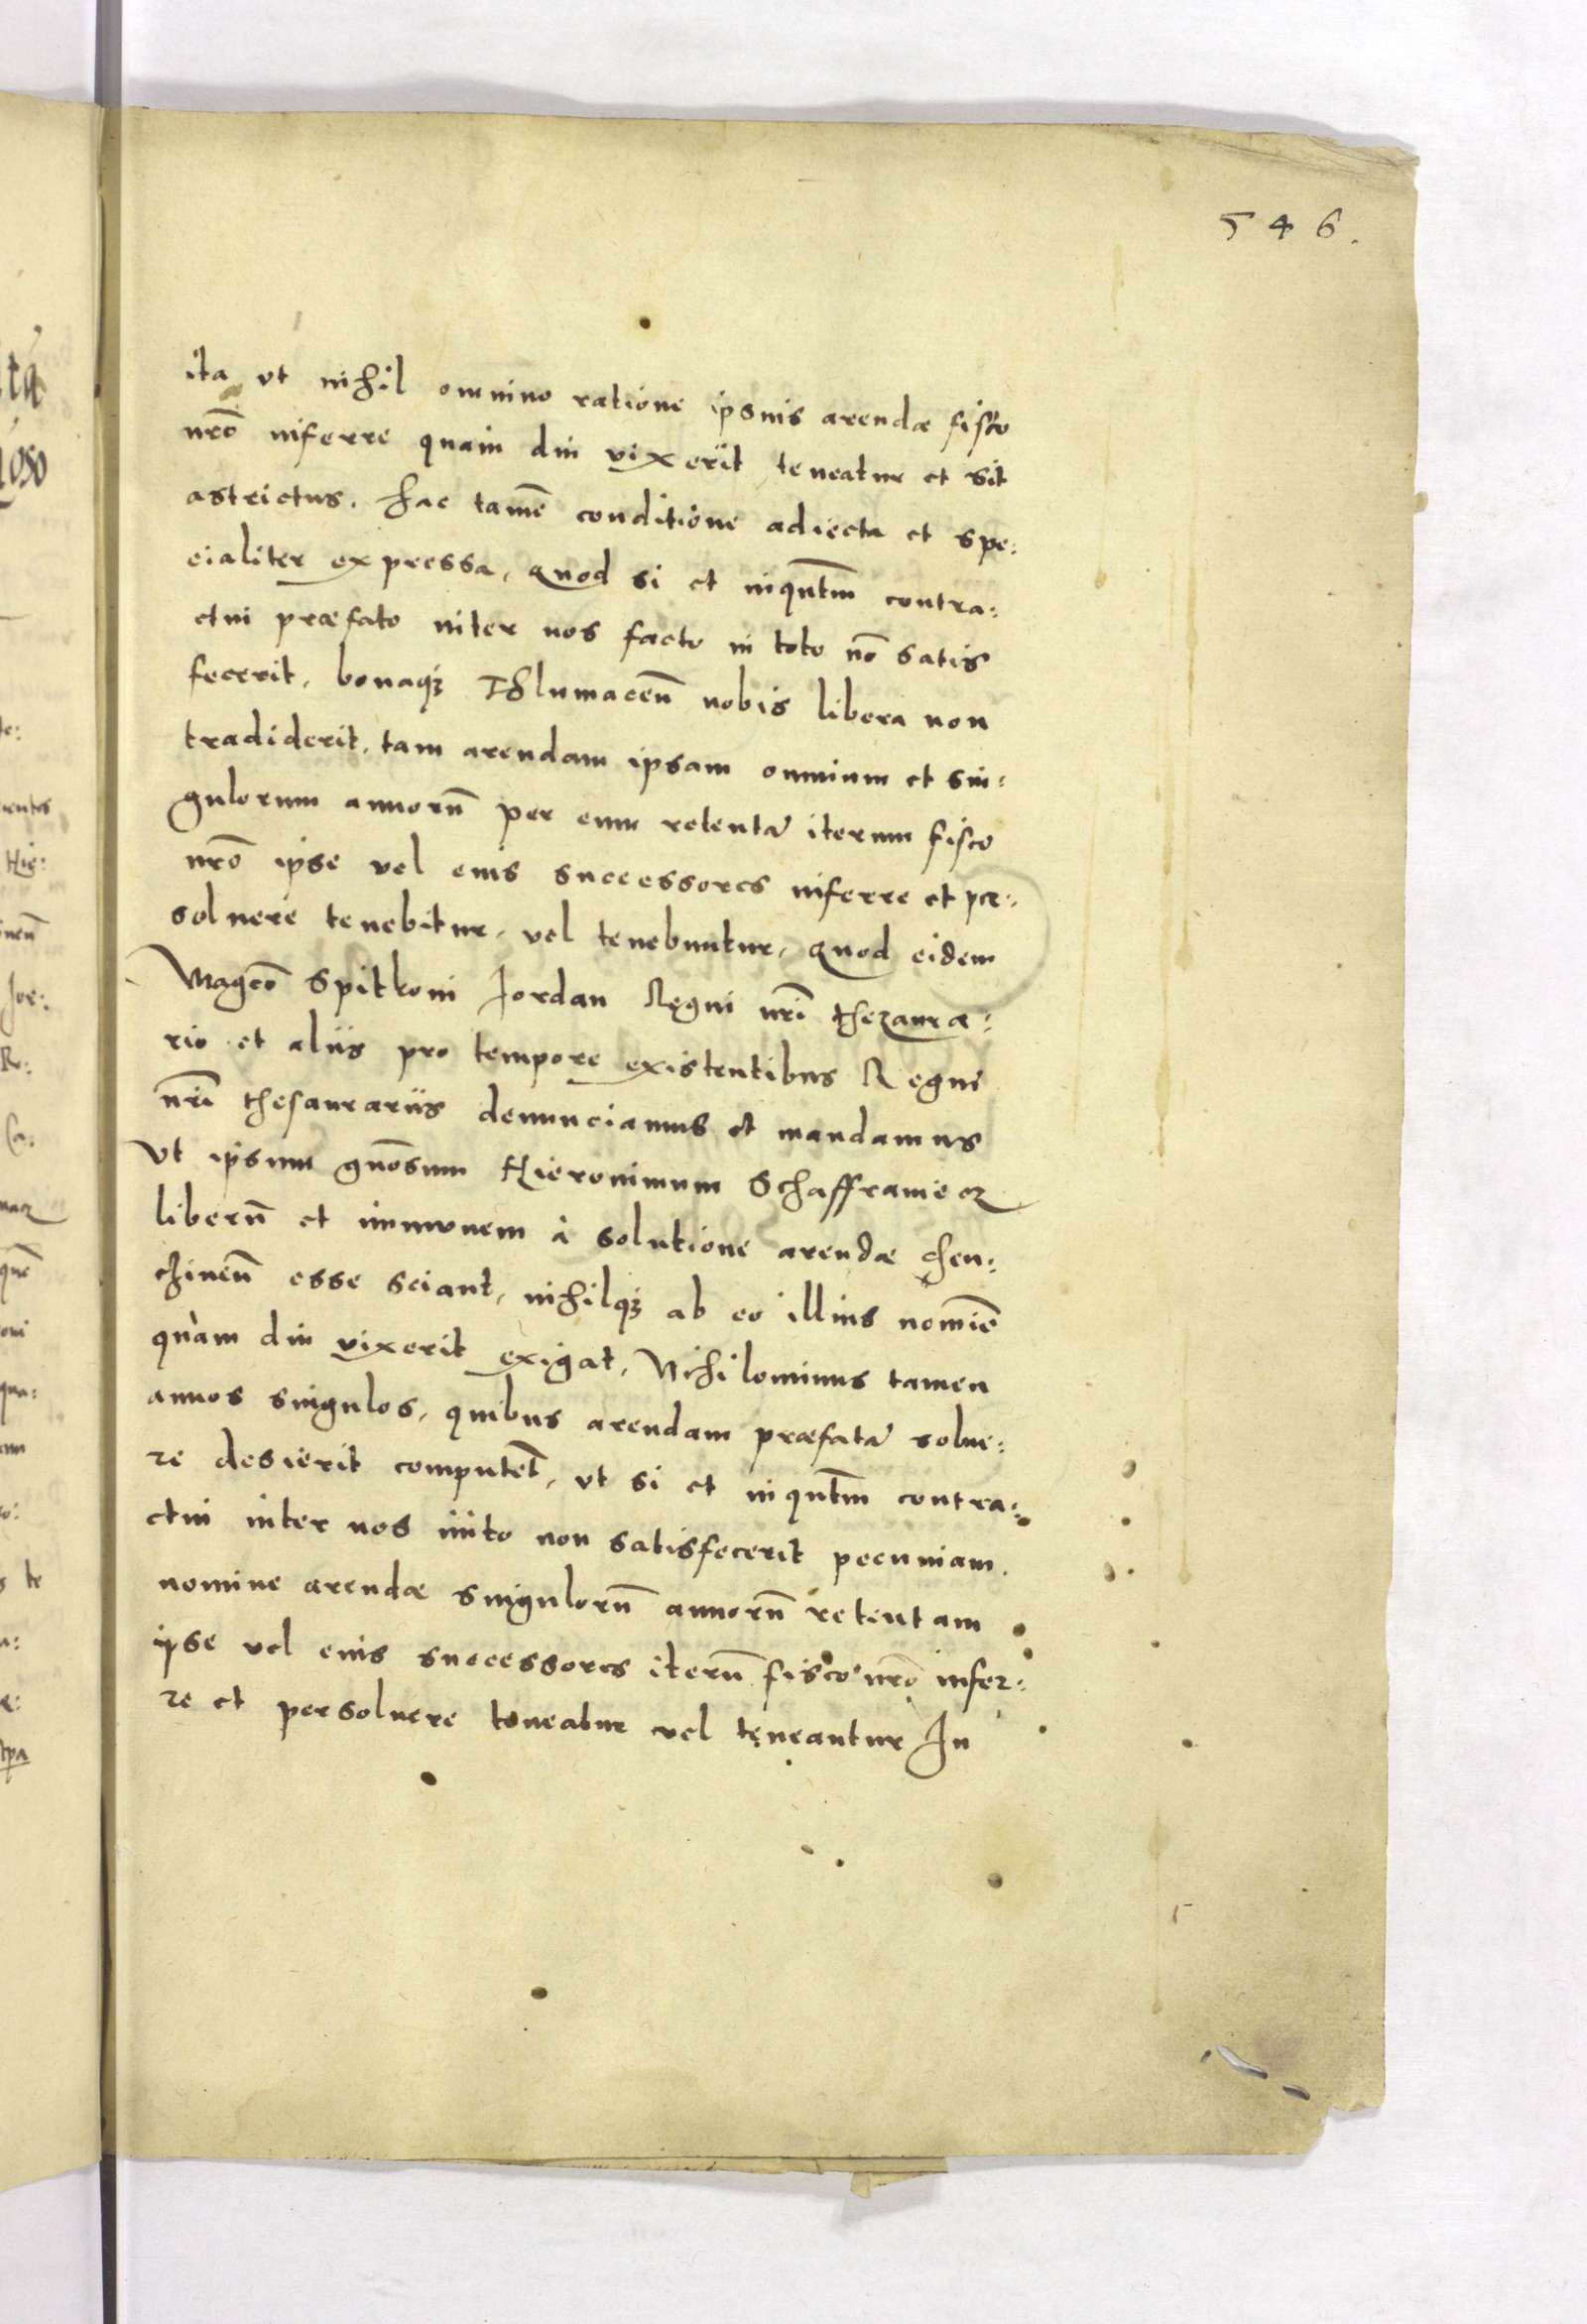 546.
ita ut nihil omnino ratione ipsius arendæ fisco
nr̃o inferre quam diu vixerit teneatur et sit
astrictus. Hac tamẽ conditione adiecta et spe:
cialiter expressa, quod si et inqũtm contra:
ctui præfato inter nos facto in toto nõ satis
fecerit, bonaqꝫ Tlumaceñ nobis libera non
tradiderit, tam arendam ipsam omnium et sin:
gulorum annorũ per eum retentã iterum fisco
nr̃o ipse vel eius successores inferre et per:
soluere tenebitur, vel tenebuntur, quod eidem
Magco Spitkoni Jordan Regni nr̃i thezaura:
rio et aliis pro tempore existentibus Regni
nr̃i thesaurariis denunciamus et mandamus
Vt ipsum gñosum Hieronimum Schafframecz
liberũ et immunem à solutione arendæ chen:
chineñ esse sciant, nihilqꝫ ab eo illius nomiẽ
quam diu vixerit exigat, Nihilominus tamen
annos singulos, quibus arendam præfatã solue:
re desierit computet, ut si et inqũtm contra:
ctui inter nos inito non satisfecerit pecuniam
nomine arendæ singulorũ annorũ retentam
ipse vel eius successores iterũ fisco nr̃o infer:
re et persoluere teneatur vel teneantur In